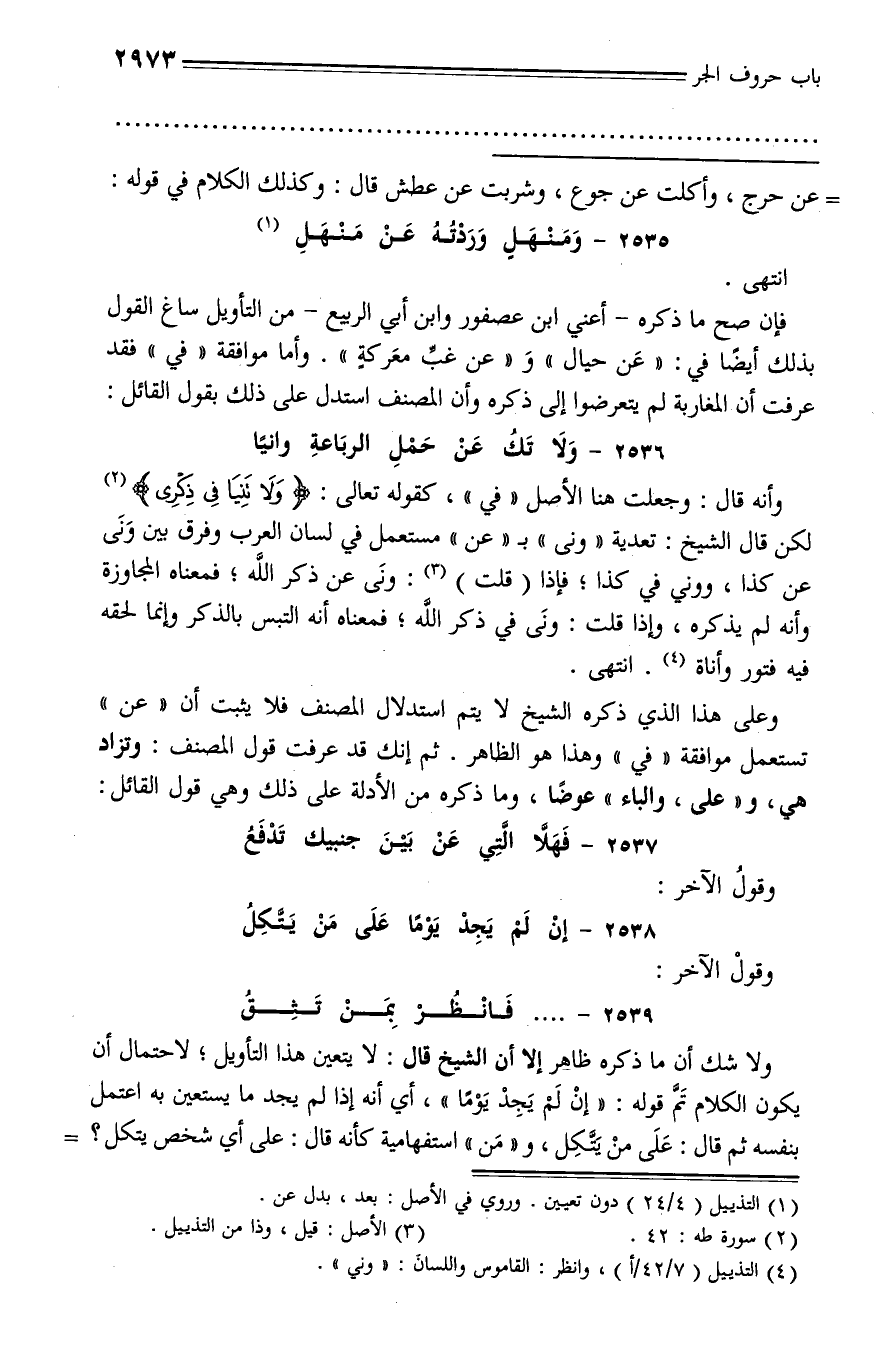 باب حروف الجر ٢٩٧٣
= عن حرج ، وأكلت عن جوع ، وشربت عن عطش قال : وكذلك الكلام في قوله :
٢٥٣٥ - وَمَنْهَلٍ وَرَدْتُهُ عَنْ مَنْهَلِ (١)
انتهى .
فإن صح ما ذكره - أعني ابن عصفور وابن أبي الربيع - من التأويل ساغ القول
بذلك أيضًا في : « عَن حيال » وَ « عن غبِّ معَركةٍ » . وأما موافقة « في » فقد
عرفت أن المغاربة لم يتعرضوا إلى ذكره وأن المصنف استدل على ذلك بقول القائل :
٢٥٣٦ - وَلَا تَكُ عَنْ حَمْلِ الربَاعةِ وانيًا
وأنه قال : وجعلت هنا الأصل « في » ، كقوله تعالى : ﴿ وَلَا نَنِيَا فِي ذِكْرِى ﴾ (٢)
لكن قال الشيخ : تعدية « ونى » بـ « عن » مستعمل في لسان العرب وفرق بين وَنَى
عن كذا ، ووني في كذا ؛ فإذا ( قلت ) (٣) : ونَى عن ذكر اللَّه ؛ فمعناه المجاوزة
وأنه لم يذكره ، وإذا قلت : ونَى في ذكر اللَّه ؛ فمعناه أنه التبس بالذكر وإنما لحقه
فيه فتور وأناة (٤) . انتهى .
وعلى هذا الذي ذكره الشيخ لا يتم استدلال المصنف فلا يثبت أن « عن »
تستعمل موافقة « في » وهذا هو الظاهر . ثم إنك قد عرفت قول المصنف : وتزاد
هي، و« على ، والباء » عوضًا ، وما ذكره من الأدلة على ذلك وهي قول القائل :
٢٥٣٧ - فَهَلَّا الَّتِي عَنْ بَيْنَ جنبيك تَدْفَعُ
وقولُ الآخر :
٢٥٣٨ - إنْ لَمْ يَجِدْ يَوْمًا عَلَى مَنْ يَتَّكِلُ
وقولْ الآخر :
٢٥٣٩ - .... فَانْظُرْ بِمَنْ تَثِقُ
ولا شك أن ما ذكره ظاهر إلا أن الشيخ قال : لا يتعين هذا التأويل ؛ لاحتمال أن
يكون الكلام تَمَّ قوله : « إنْ لَمْ يَجِدْ يَوْمًا » ، أي أنه إذا لم يجد ما يستعين به اعتمل
بنفسه ثم قال : عَلَى منْ يَتَّكِل ، و « مَن » استفهامية كأنه قال : على أي شخص يتكل ؟ =
(١) التذييل ( ٢٤/٤ ) دون تعيين . وروي في الأصل : بعد ، بدل عن .
(٢) سورة طه : ٤٢ . (٣) الأصل : قيل ، وذا من التذييل .
(٤) التذييل ( ٤٢/٧/أ ) ، وانظر : القاموس واللسان : « وني » .